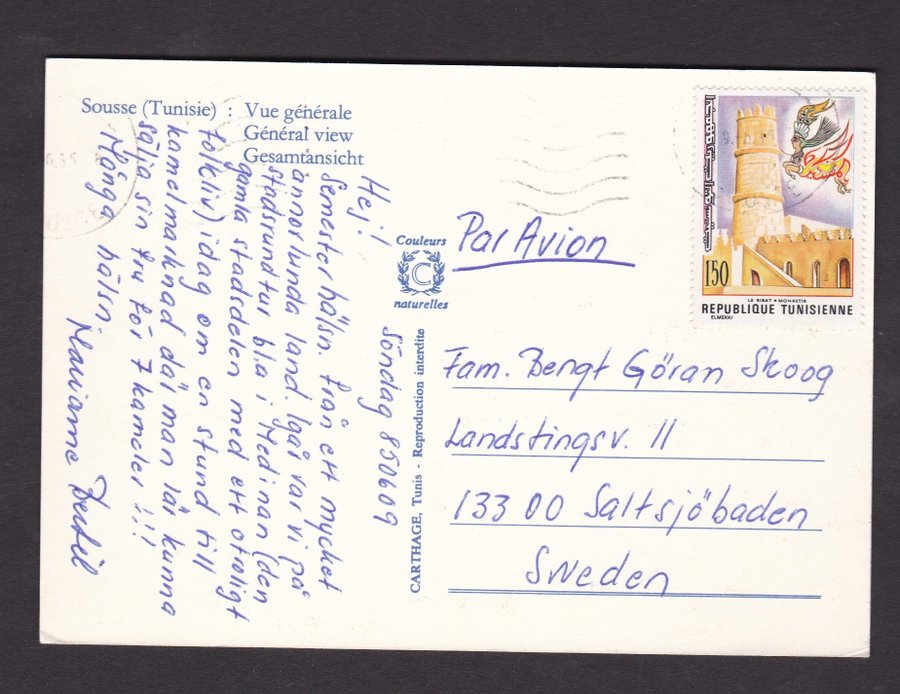 Sousse (Tunisie) : Vue générale
Général view
Gesamtansicht
Söndag 850609
Hej!
Semesterhälsn. från ett mycket
annorlunda land. Igår var vi på
stadsrundtur bl.a i Medinan (den
gamla stadsdelen med ett otroligt
folkliv) idag om en stund till
kamelmarknad där man lär kunna
sälja sin fru för 7 kameler!!!
Många hälsn.
Marianne Bertil
Couleurs
C
naturelles
CARTHAGE, Tunis - Reproduction interdite
Par Avion
150
LE RIBAT • MONASTIR
ELMEKKI
REPUBLIQUE TUNISIENNE
Fam. Bengt Göran Skoog
Landstingsv. 11
13300 Saltsjöbaden
Sweden